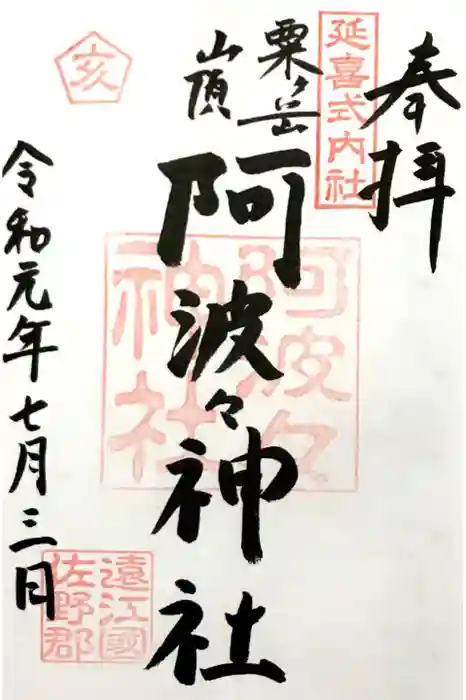 奉拝
延喜式内社
粟ヶ岳
山頂
阿波々神社
阿波々
神社
亥
令和元年七月三日
遠江國
佐野郡